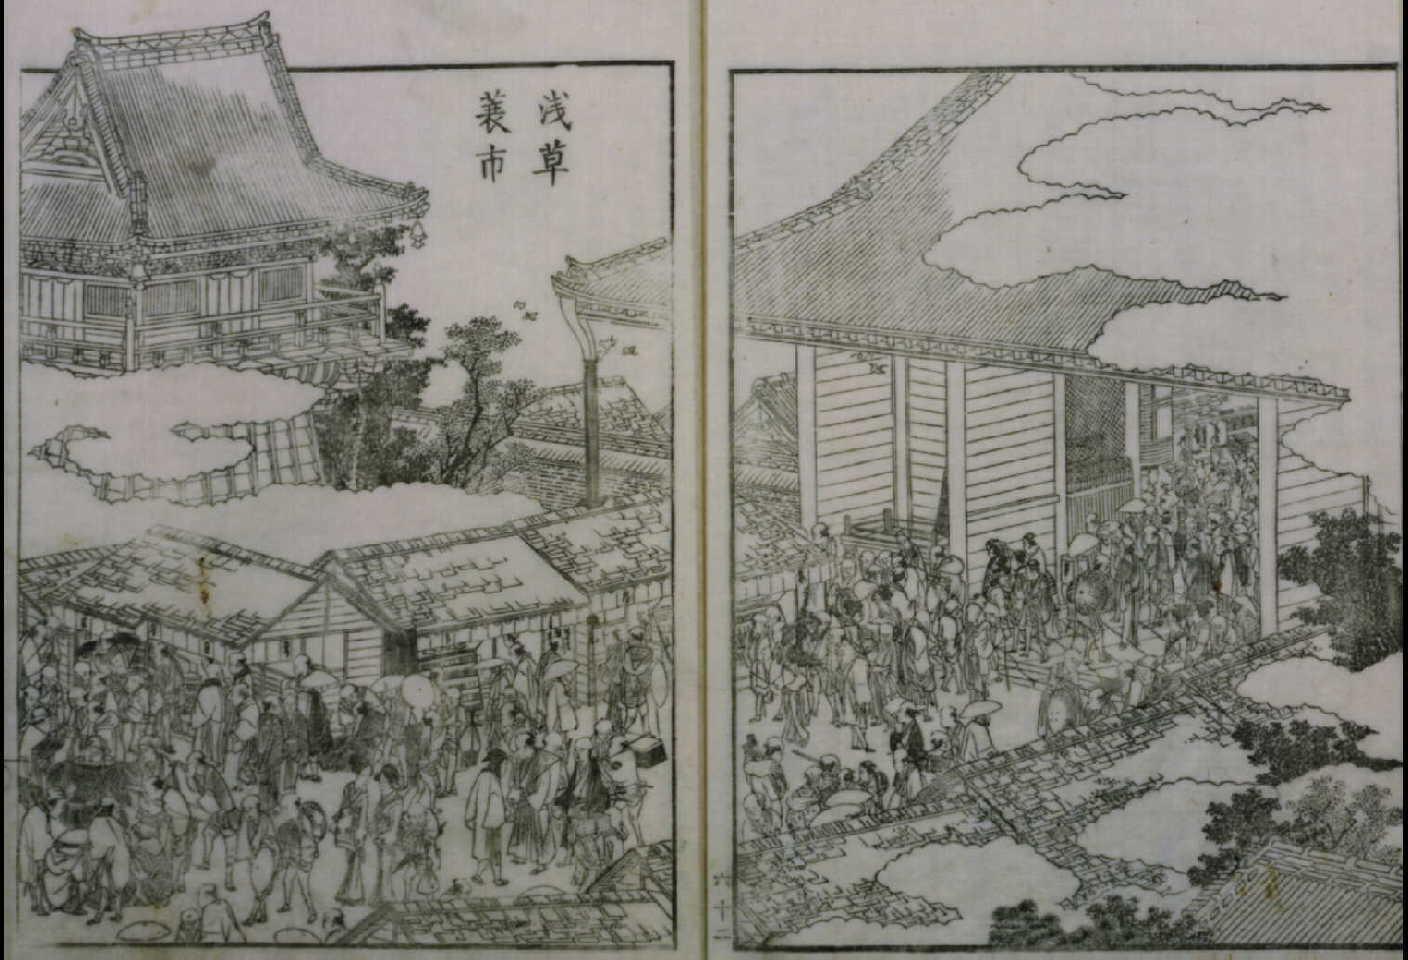 浅草
蓑市
六十二